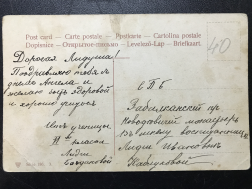 Post card – Carte postale – Postkarte – Cartolina postale
Dopisnice – Открытое письмо – Levelező-Lap – Briefkaart.
40
Дорогая Лидуша!
Поздравляю тебя с
днемъ Ангела и
желаю быть здоровой
и хорошо
ученицы
класса
Лидии
С П Б
Забалканский пр
Новодевичий монастырь
воспитаннице
Лидии Ивановне